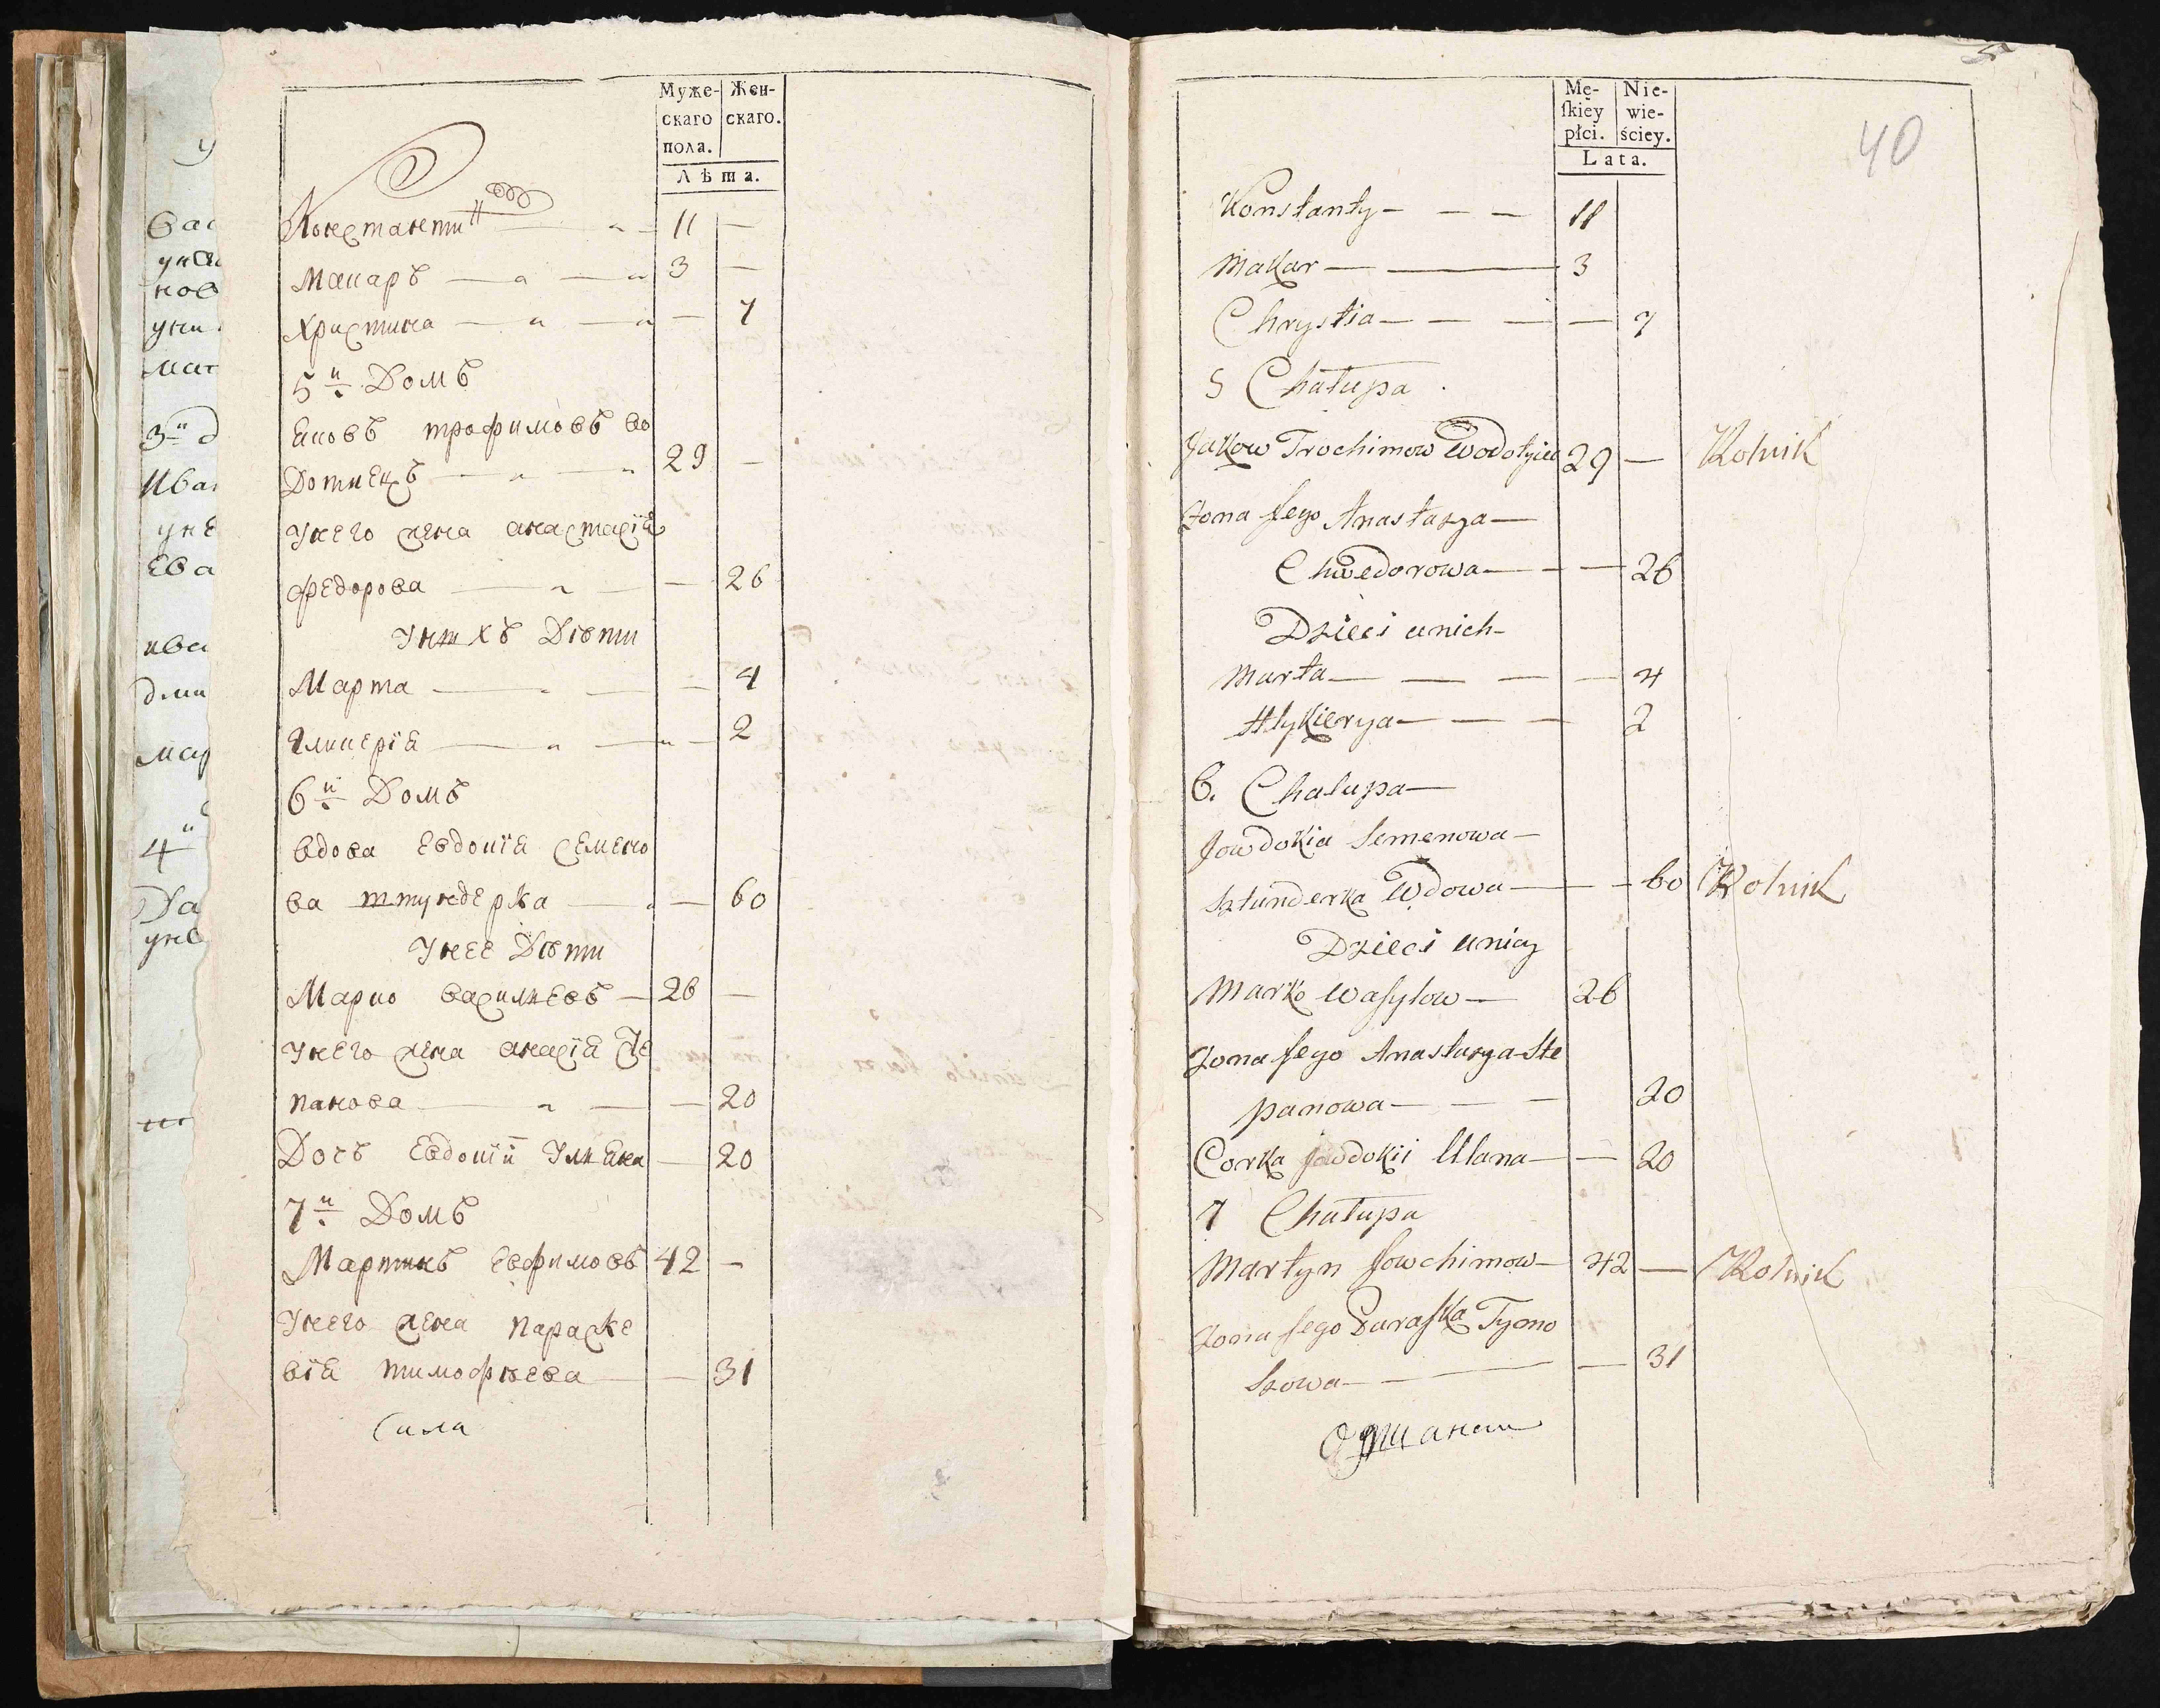 Муже-
скаго
пола.
Жен-
скаго.
Лѣта.
Константи 11 —
Макаръ 3 —
Христина — 7
5й Домъ
Яковъ трофимовъ во
Дотиецъ 29 —
Унего жена анастасїя
федорова — 26
Унихъ Дѣти
Марта — 4
Гликерїя — 2
6й Домъ
вдова Евдокїя семено
ва штундерка — 60
Унее Дѣти
Марко васильевъ — 26 —
Унего жена анасїя Сте
панова — 20
Дочь Евдокїи Ульяна — 20
7й Домъ
Мартинъ Евфимовъ 42 —
Унего жена параске
вїя тимофѣева — 31
сила
Mę-
ſkiey
płci.
Nie-
wie-
ściey.
Lata.
40
Konstanty — 11
Makar — 3
Chrystia — 7
5 Chałupa
Jakow Trochimow Wodotyiec 29 — Rolnik
Zona Jego Anastazya —
Chwedorowa — 26
Dzieci unich
Marta — 4
Hlykierya — 2
6. Chalupa —
Jowdokia Semenowa —
Sztunderka Wdowa — 60 Rolnik
Dzieci uniey
Marko Wasylow — 26
Zona Jego Anastazya Ste
panowa — 20
Corka Jowdokii Ulana — 20
7 Chałupa
Martyn Jowchimow — 42 — Rolnik
Zona Jego Paraska Tymo
szowa — 31